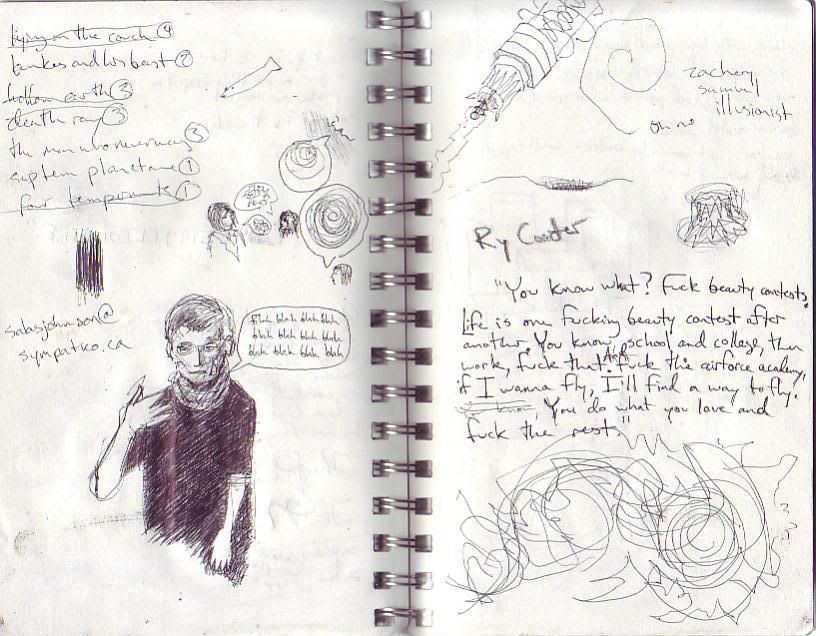 lying on the couch 4
hollow earth 3
death ray 3
septem planetame 1
four temperments 1
salasjohnson@
sympatico.ca
Blah blah blah blah
blah blah blah blah
blah blah blah blah
zachery
samuel
illusionist
oh no
Ry Cooder
"You know what? Fuck beauty contests.
Life is one fucking beauty contest after
another. You know, school and college, then
work, fuck that. And fuck the airforce academy,
if I wanna fly, I'll find a way to fly.
You know, You do what you love and
fuck the rest."